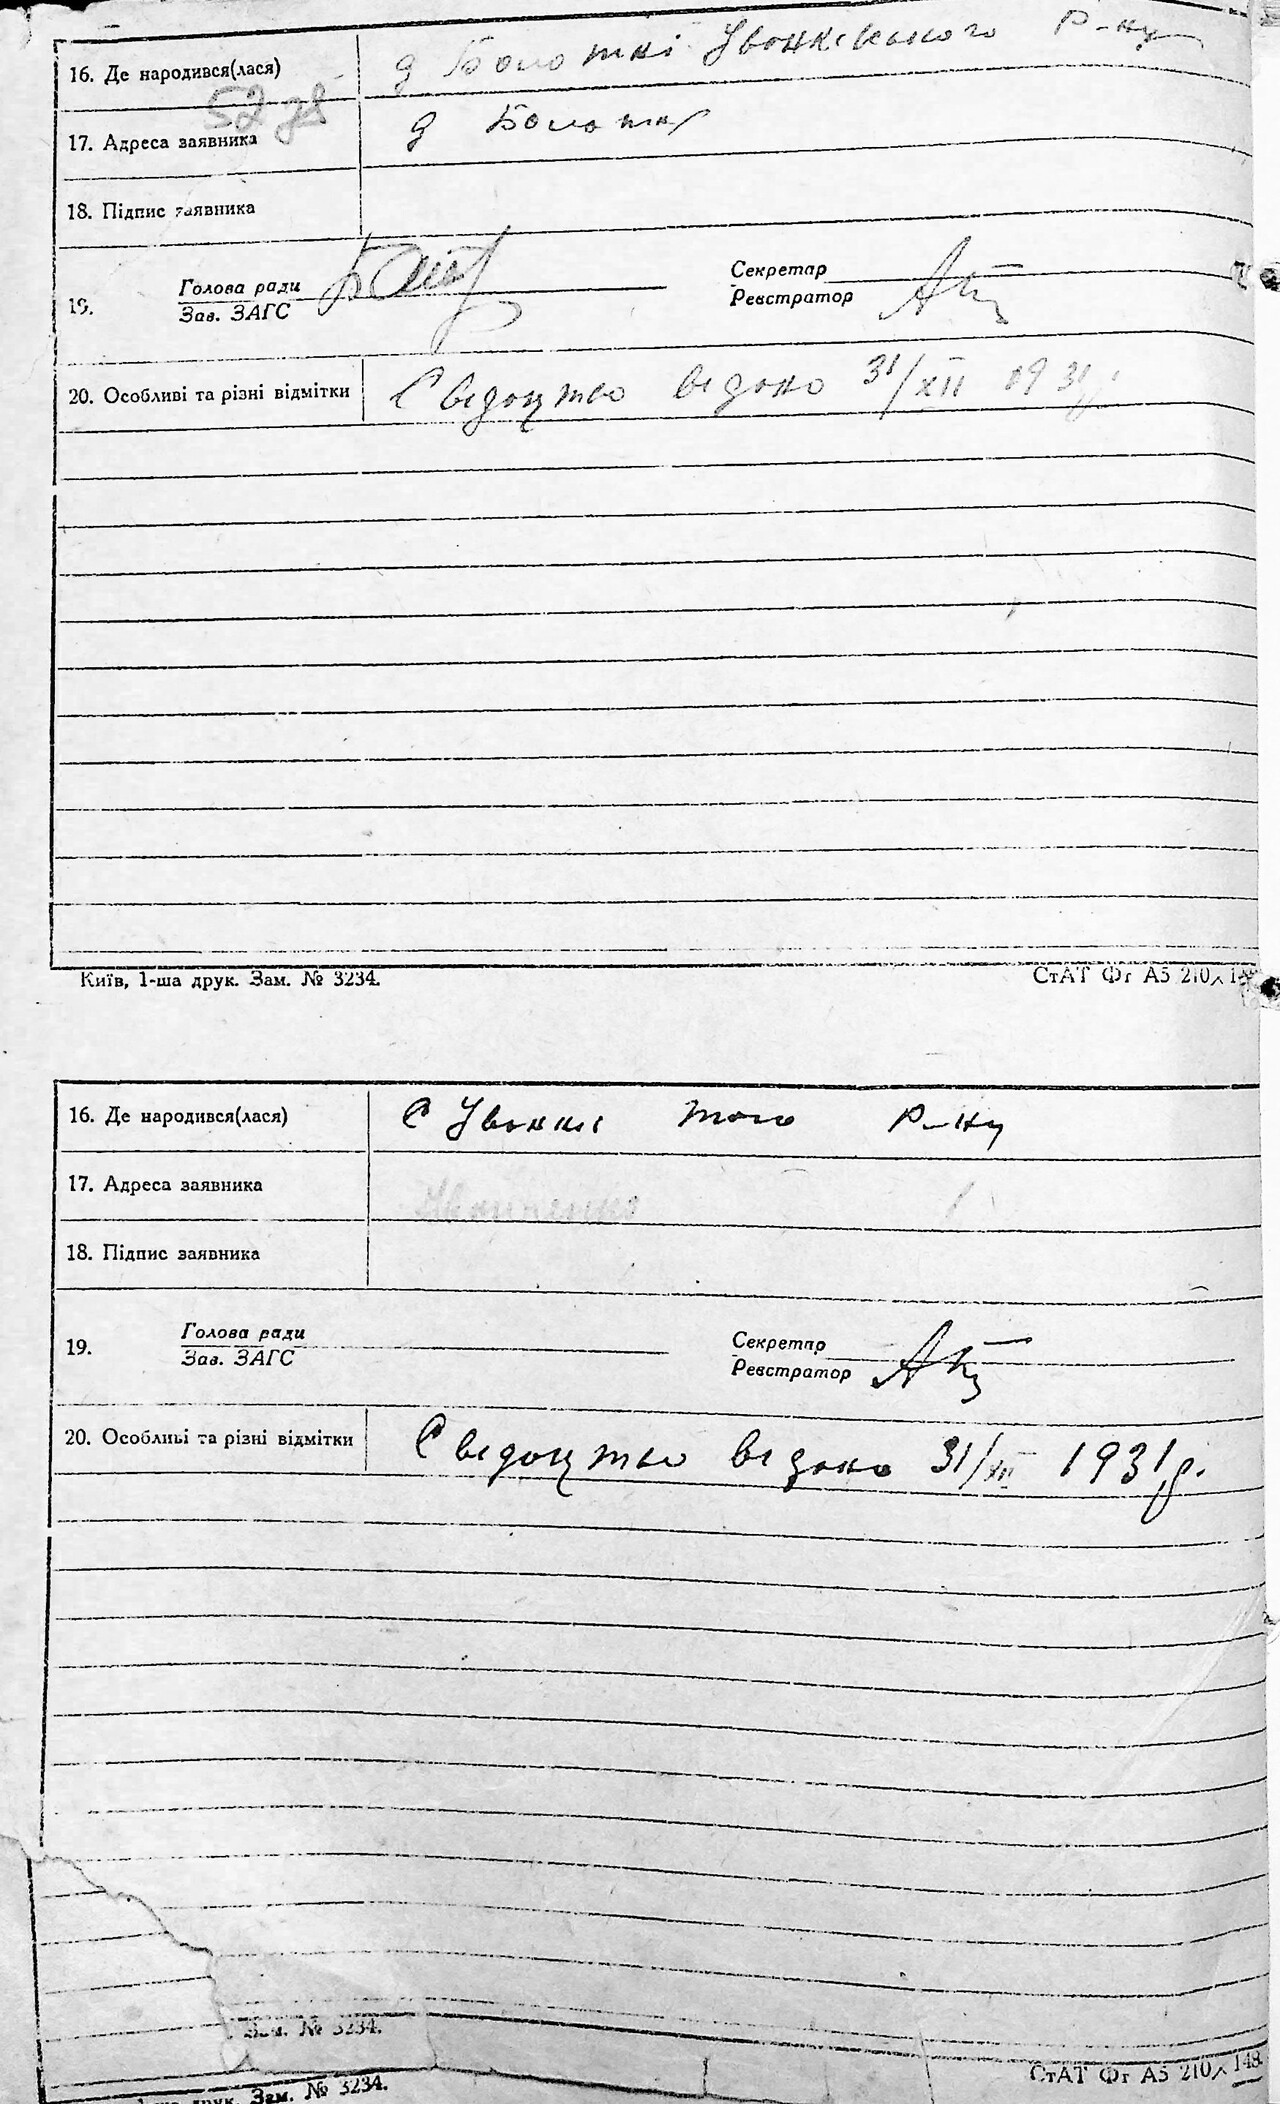 16. Де народився(лася) д Болоткі Уванківського Р-ну
52
17. Адреса заявника д Болоткі
18. Підпис заявника
Голова ради Секретар
19.
Зав. ЗАГС Реєстратор
20. Особливі та різні відмітки Свідоцтво відоно 31/XII 1931р.
Київ, 1-ша друк. Зам. № 3234. СтАТ Фг А5 210×148
16. Де народився(лася) С Уванкі того Р-ну
17. Адреса заявника
18. Підпис заявника
Голова ради Секретар
19.
Зав. ЗАГС Реєстратор
20. Особливі та різні відмітки Свідоцтво відоно 31/XII 1931р.
Зам. № 3234.
друк. Зам. № 3234. СтАТ Фг А5 210×148